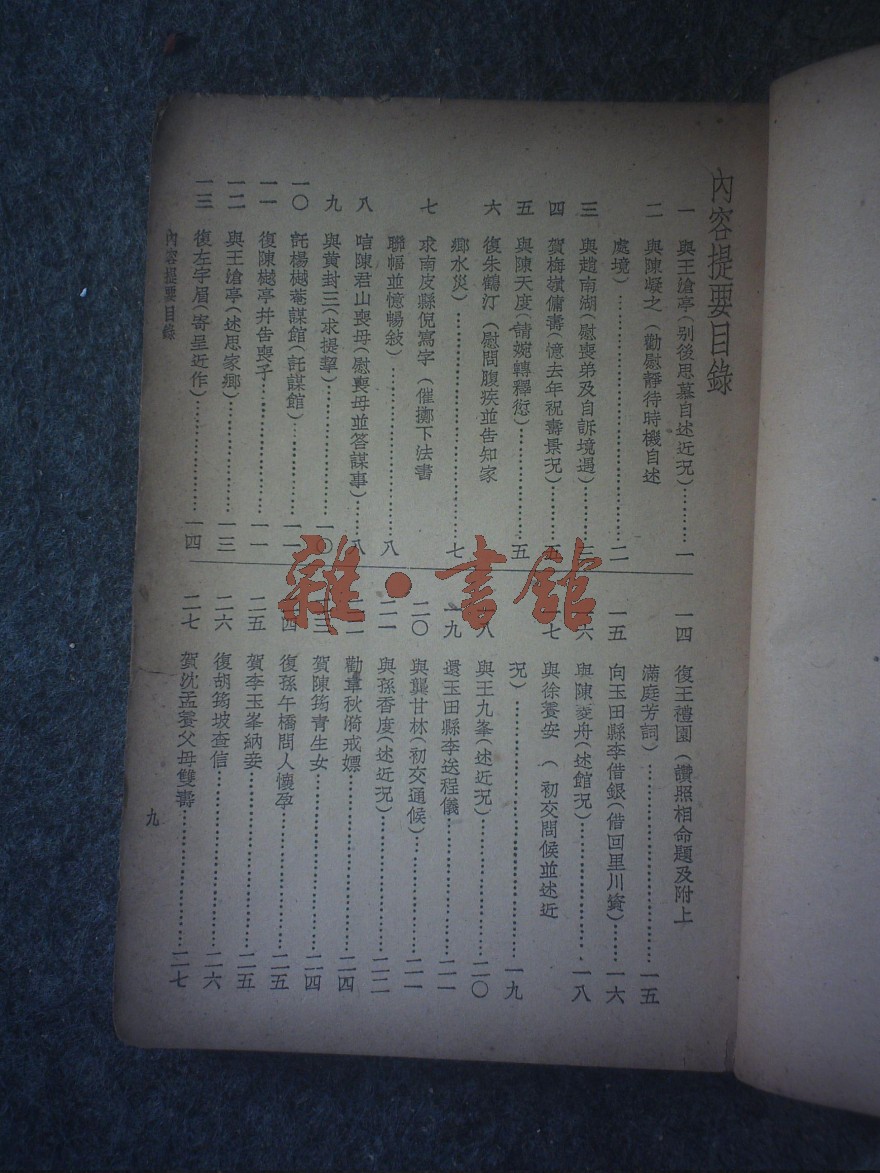 內容提要目錄
一 與王滄亭(别後思慕自述近況)………一
二 與陳凝之(勸慰靜待時機自述
處境)………二
三 與趙南湖(慰喪弟及自訴境遇)………三
四 贺梅嶺傭壽(憶去年祝壽景況)………五
五 與陳天度(請婉轉釋衍)………五
六 復朱鶴汀(慰問腹疾並告知家
鄉水災)………七
七 求南皮縣倪寫字(催擲下法書
聯幅並憶暢敍)………八
八 唁陳君山喪母(慰喪母並答謀事)………八
九 與黄封三(求提挈)………一〇
一〇 託楊樾菴謀館(託謀館)………一一
一一 復陳樾亭并告喪子………一一
一二 與王滄亭(述思家鄉)………一三
一三 復左宇眉(寄呈近作)………一四
一四 復王禮園(讚照相命題及附上
滿庭芳詞)………一五
一五 向玉田縣李借銀(借回里川資)………一六
一六 與陳菱舟(述館況)………一八
一七 與徐養安(初交問候並述近
況)………一九
一八 與王九峯(述近況)………二〇
一九 還玉田縣李送程儀………二一
二〇 與龔甘林(初交通候)………二一
二一 與孫香度(述近況)………二二
二二 勸韋秋漪戒嫖………二四
二三 賀陳筠青生女………二四
二四 復孫午橋問人懷孕………二五
二五 賀李玉峯納妾………二五
二六 復胡筠坡查信………二六
二七 贺沈孟養父母雙壽………二七
內容提要目錄
九
雜·書館